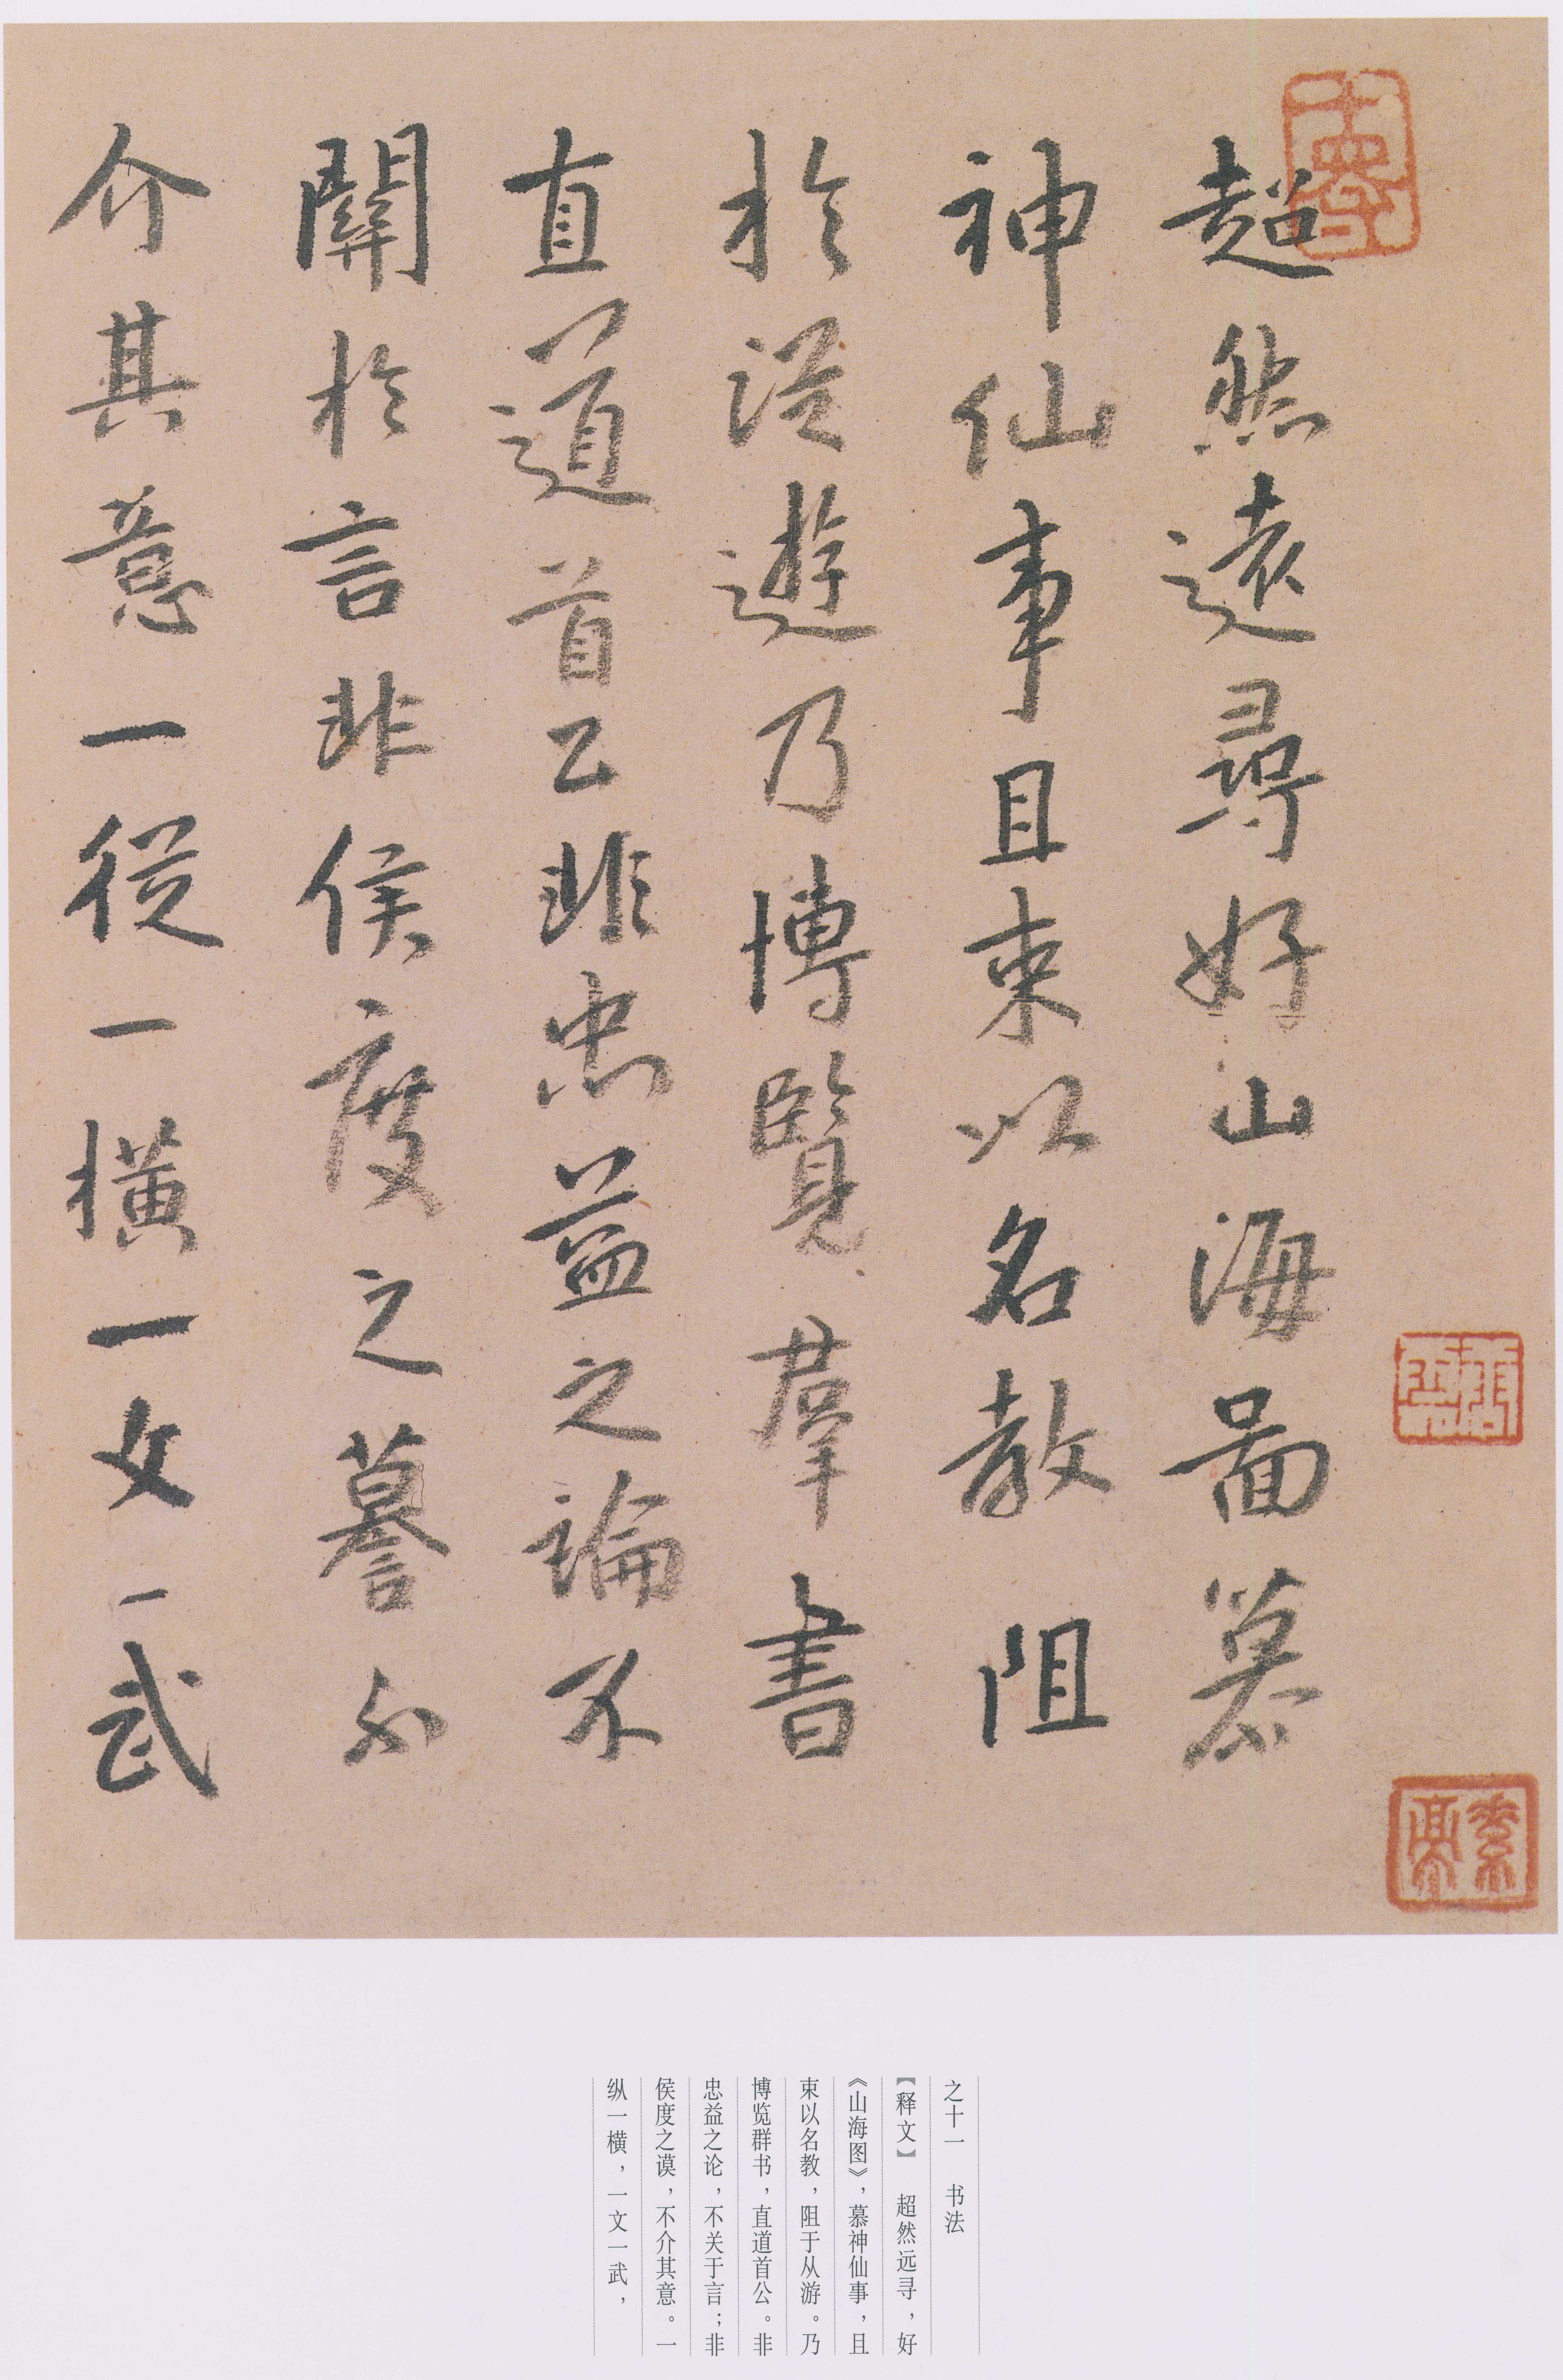 超然遠尋好山海啚慕
神仙事且束以名教阻
於從遊乃博覽羣書
直道首公非忠益之論不
關於言非侯度之謩不
介其意一從一橫一文一武
之十一 书法
【释文】 超然远寻，好
《山海图》，慕神仙事，且
束以名教，阻于从游。乃
博览群书，直道首公。非
忠益之论，不关于言；非
侯度之谟，不介其意。一
纵一横，一文一武，